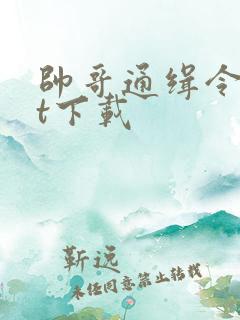 帥哥通缉令
t下載
靳远
未经同意禁止转载